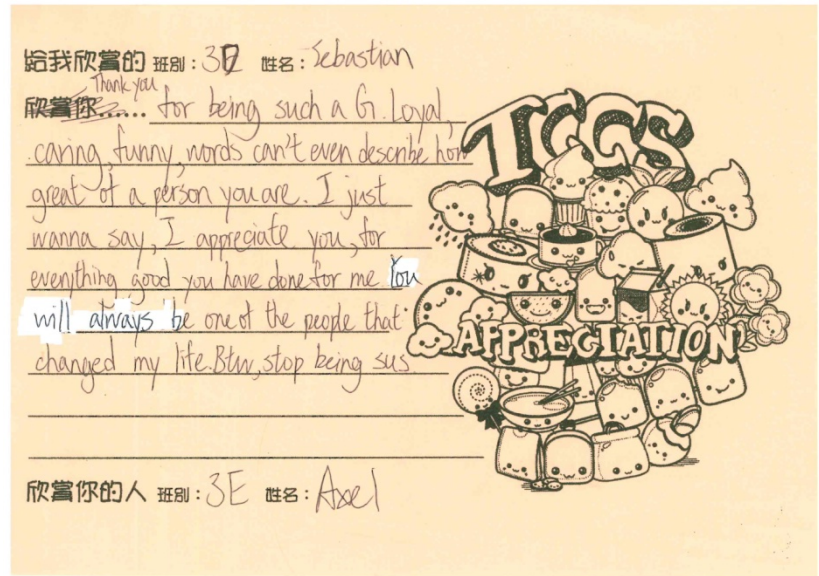 給我欣賞的 班別：3E 姓名：Sebastian
Thank you
欣賞你...... for being such a G. Loyal,
caring, funny, words can't even describe how
great of a person you are. I just
wanna say, I appreciate you, for
everything good you have done for me You
will always be one of the people that
changed my life. Btw, stop being sus
欣賞你的人 班別：3E 姓名：Axel
TCGS
APPRECIATION